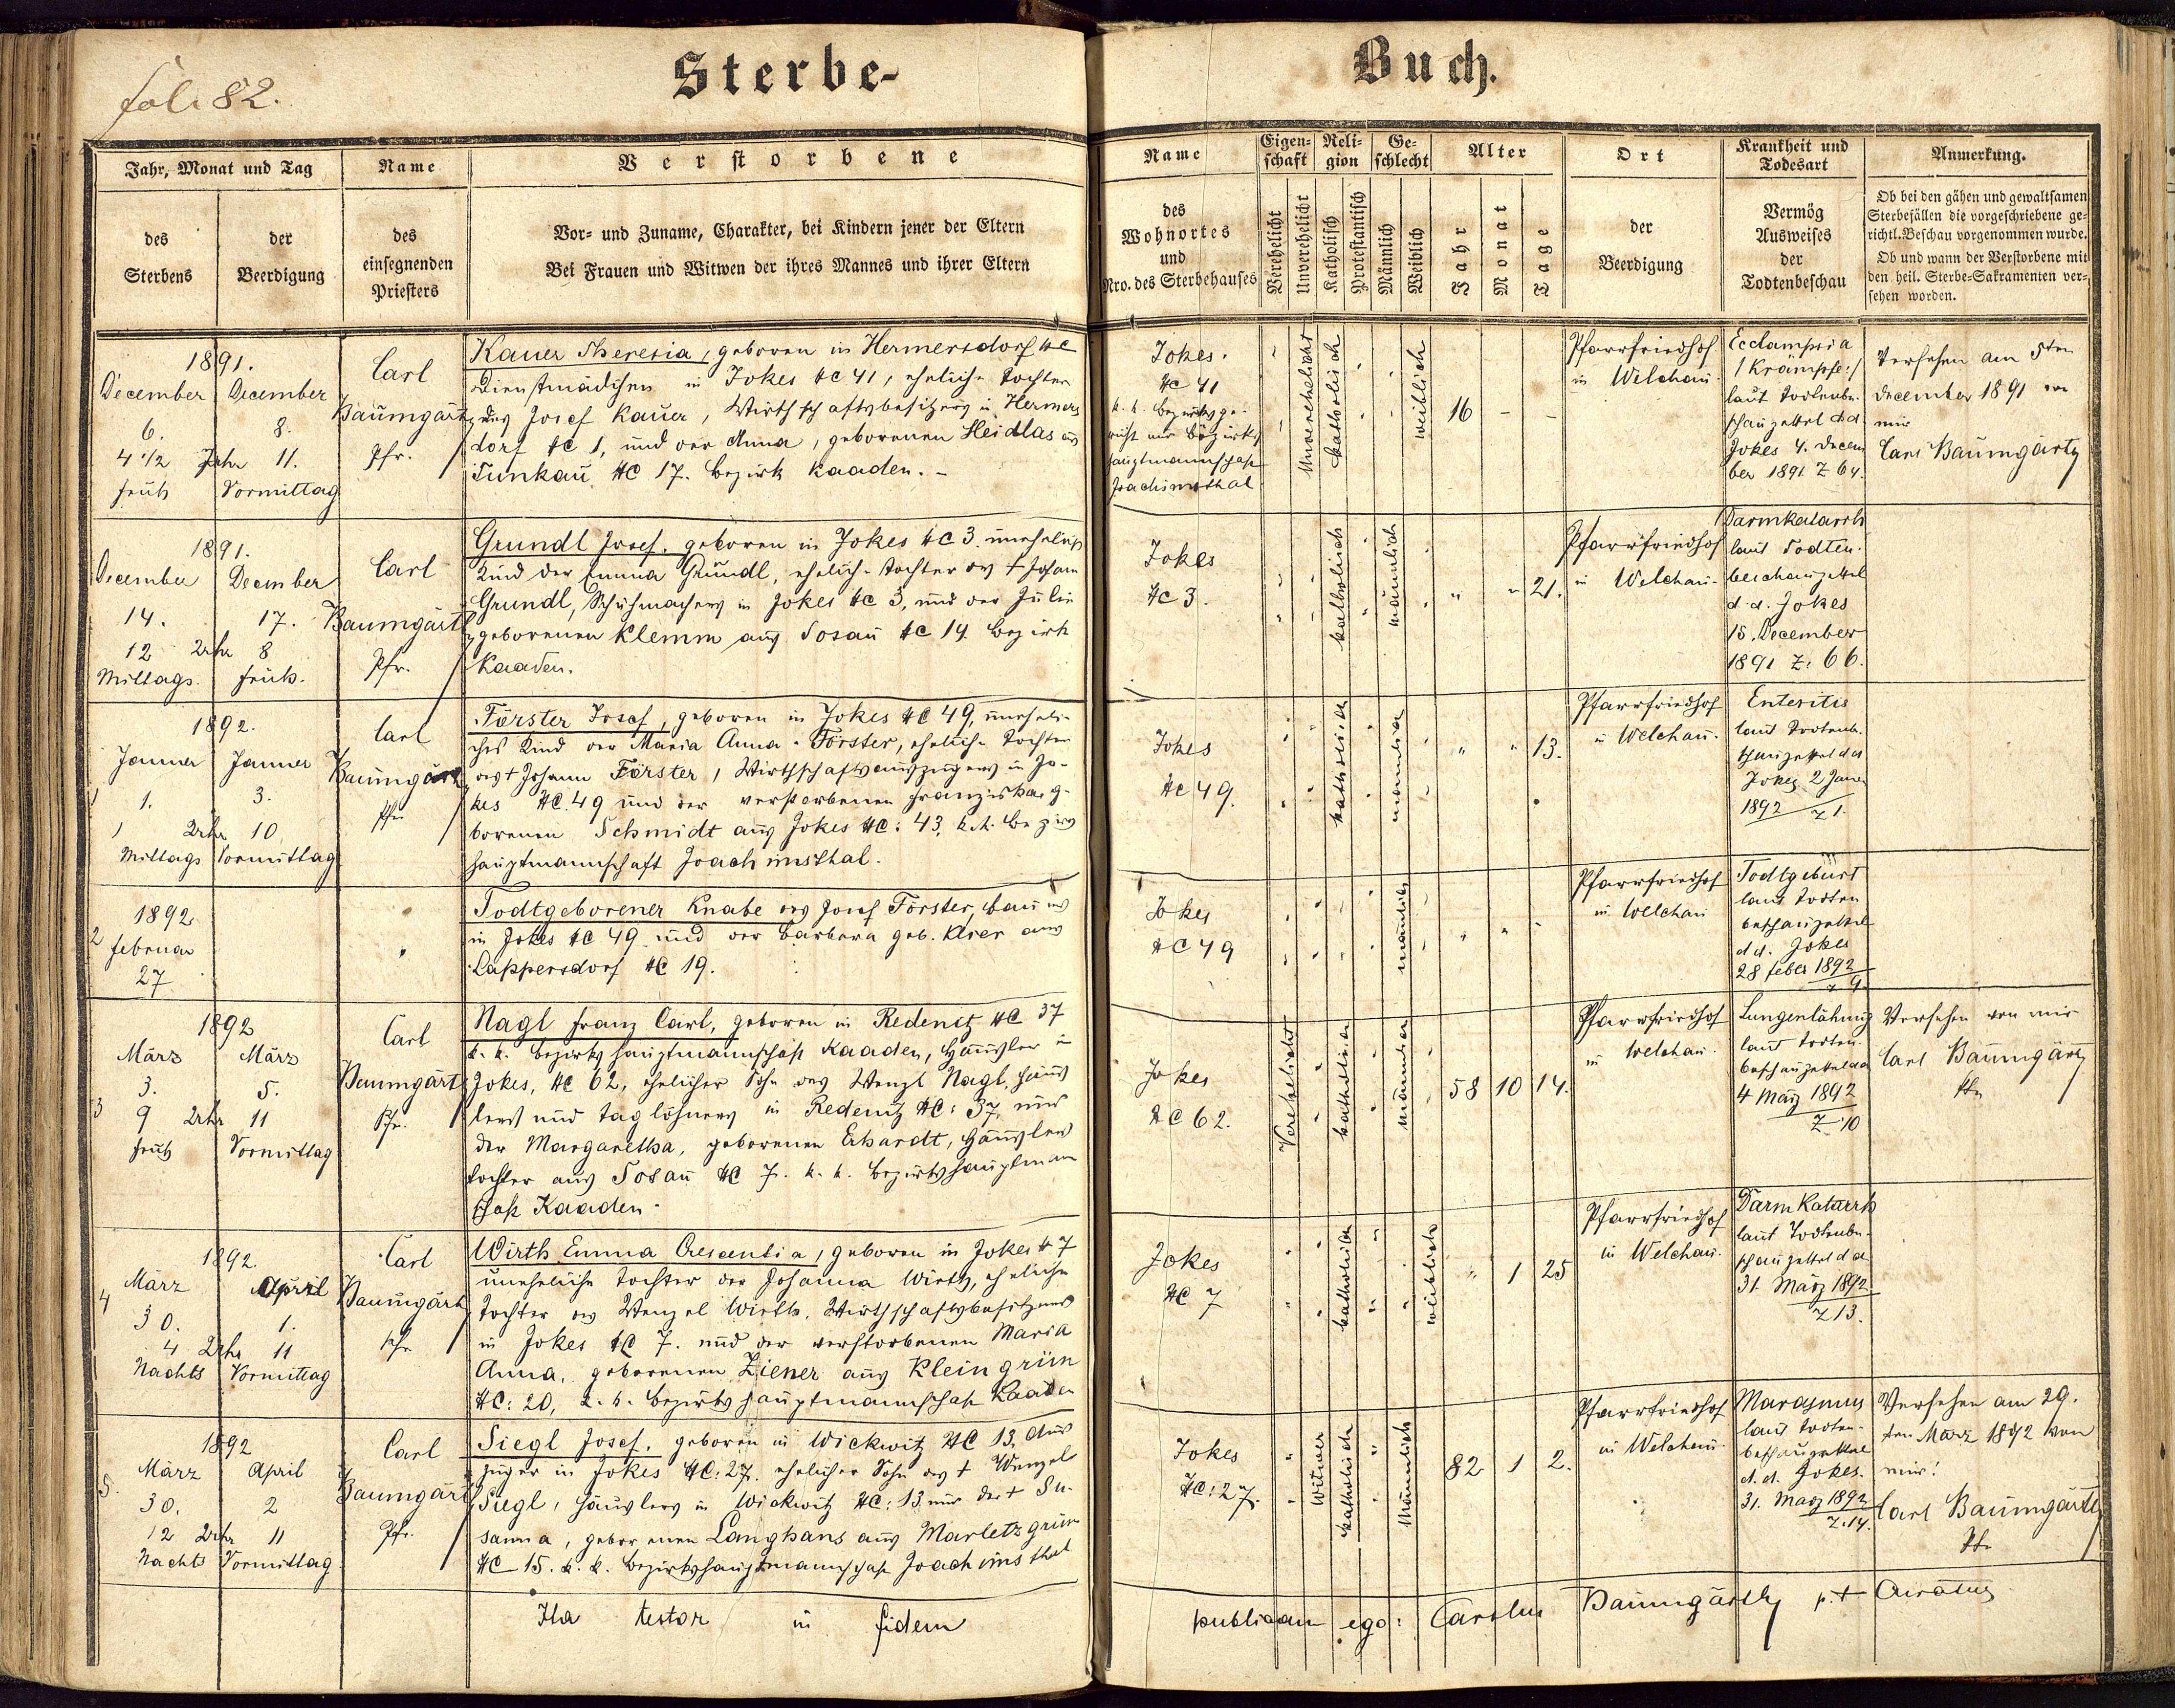 fol. 82.
Sterbe-
Buch.
Jahr, Monat und Tag
des
Sterbens
der
Beerdigung
Name
des
einsegnenden
Priesters
Verstorbene
Vor- und Zuname, Charakter, bei Kindern jener der Eltern
Bei Frauen und Witwen der ihres Mannes und ihrer Eltern
Name
des
Wohnortes
und
Nro. des Sterbehauses
Eigen-
schaft
Verehelicht
Unverehelicht
Reli-
gion
Katholisch
Protestantisch
Ge-
schlecht
Männlich
Weiblich
Alter
Jahr
Monat
Tage
Ort
der
Beerdigung
Krankheit und
Todesart
Vermög
Ausweises
der
Todtenbeschau
Anmerkung.
Ob bei den gähen und gewaltsamen
Sterbefällen die vorgeschriebene ge-
richtl. Beschau vorgenommen wurde.
Ob und wann der Verstorbene mit
den heil. Sterbe-Sakramenten ver-
sehen worden.
1891.
December
6.
4 1/2 Uhr
früh
December
8.
11.
Vormittag
Carl
Baumgärtl
Pfr.
Kauer Theresia, geboren in Hermersdorf
Dienstmädchen in Jokes NC 41, eheliche Tochter
des Josef Kauer, Wirthschaftsbesitzers in Hermers
dorf NC 1, und der Anna, geborenen Heidlas aus
Tunkau NC 17. Bezirk Kaaden. -
Jokes.
NC 41
k. k. Bezirksge-
hauptmannschaft
Joachimsthal
Unverehelicht
katholisch
weiblich
16 - -
Pfarrfriedhof
in Welchau.
Ecclampsia
/Krämpfe:/
laut Todtenbe-
schauzettel dd
Jokes 4. Decem
ber 1891 Z 64.
Versehen am 5ten
December 1891 von
mir
Carl Baumgärtl
1891.
December
14.
12 Uhr
Mittags.
December
17.
8
früh.
Carl
Baumgärtl
Pfr.
Grundl Josef, geboren in Jokes NC 3. unehelich
Kind der Emma Grundl, eheliche Tochter des + Johann
Grundl, Schuhmachers in Jokes NC 3, und der Julie
geborenen Klemm aus Tosau NC 14 Bezirk
Kaaden.
Jokes
NC 3.
katholisch
männlich
" " 21.
Pfarrfriedhof
in Welchau.
Darmkatarrh
laut Todten-
beschauzettel
d. d. Jokes
15. December
1891 Z. 66.
1892.
Jänner
1.
1 Uhr
Mittags
Jänner
3.
10
Vormittag
Carl
Baumgärtl
Pfr
Förster Josef, geboren in Jokes NC 49, uneheli-
ches Kind der Maria Anna Förster, eheliche Tochter
des + Johann Förster, Wirthschaftsauszüglers in Jo-
kes NC. 49 und der verstorbenen Franziska, ge-
borenen Schmidt aus Jokes NC: 43, k. k. Bezirks
hauptmannschaft Joachimsthal.
Jokes
NC 49.
katholisch
männlich
" " 13.
Pfarrfriedhof
in Welchau.
Enteritis
laut Todtenb-
schauzettel dd
Jokes 2 Jänner
1892 Z 1.
1892
2 Februar
27
Todtgeborener Knabe des Josef Förster, Bauers
in Jokes NC 49 und der Barbara geb. aus
Lappersdorf NC 19.
Jokes
NC 49
männlich
Pfarrfriedhof
in Welchau
Todtgeburt
laut Todten
beschauzettel
d d. Jokes
28 Feber 1892
Z 9.
1892
März
3.
3 9 Uhr
früh
März
5.
11
Vormittag
Carl
Baumgärtl
Pfr.
Nagl Franz Carl, geboren in Redenitz NC 37
k. k. Bezirkshauptmannschaft Kaaden, Häusler in
Jokes, NC 62, ehelicher Sohn des Wenzl Nagl, Häus
lers und Taglöhners in Redenitz NC: 37, und
der Margaretha, geborenen Erhardt, Häuslers
tochter aus Tosau NC 7. k. k. Bezirkshauptmann
schaft Kaaden.
Jokes
NC 62.
Verehelicht
katholisch
männlich
58 10 14.
Pfarrfriedhof
in Welchau.
Lungenlähmung
laut Todten-
beschauzettel dd
4 März 1892
Z 10
Versehen von mir
Carl Baumgärtl
Pfr
1892.
4 März
30.
4 Uhr
Nachts
April
1.
11
Vormittag
Carl
Baumgärtl
Pfr
Wirth Emma Crescentia, geboren in Jokes N 7
uneheliche Tochter der Johanna Wirth, eheliche
Tochter des Wenzel Wirth, Wirthschaftsbesitzers
in Jokes NC 7. und der verstorbenen Maria
Anna, geborenen Ziener aus Kleingrün
NC: 20, k. k. Bezirkshauptmannschaft Kaaden
Jokes
NC 7
katholisch
weiblich
" 1 25
Pfarrfriedhof
in Welchau.
Darmkatarrh
laut Todtenbe-
schauzettel d d
31. März 1892
Z 13.
1892
5. März
30.
12 Uhr
Nachts
April
2
11
Vormittag
Carl
Baumgärtl
Pfr.
Siegl Josef, geboren in Wickwitz NC 13, Aus
züger in Jokes NC: 27. ehelicher Sohn des + Wenzel
Siegl, Häuslers in Wickwitz NC: 13 und der + Su-
sanna, geborenen Langhans aus Marletzgrün
NC 15. k. k. Bezirkshauptmannschaft Joachimsthal
Jokes
NC: 27.
Witwer
katholisch
Männlich
82 1 2.
Pfarrfriedhof
in Welchau
Marasmus
laut Todten-
beschauzettel
d. d. Jokes.
31. März 1892
Z. 14.
Versehen am 29.
ten März 1892 von
mir!
Carl Baumgärtl
Pfr
Ita testor in fidem
publicam ego: Carolus Baumgärtl p. t. Curatus